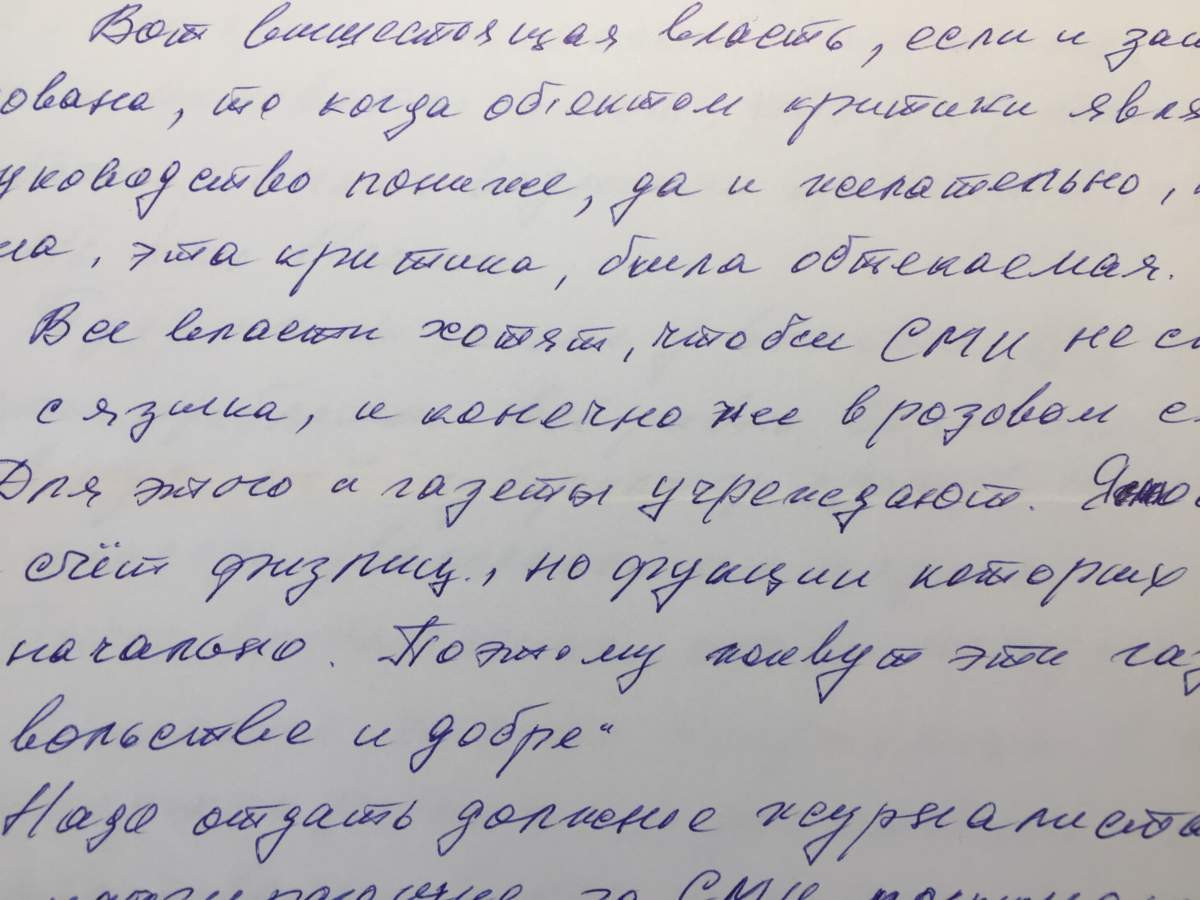 Вот вышестоящая власть, если и заи
ована, то когда объектом критики явля
уководство пониже, да и желательно,
на, эта критика, была обтекаемая.
Все власти хотят, чтобы СМИ не сл
с языка, и конечно же в розовом
Для этого и газеты учреждают.
счёт физлиц., но функции которых
начально. Поэтому живут эти газ
вольствие и добре"
Надо отдать должное журналиста
за СМИ